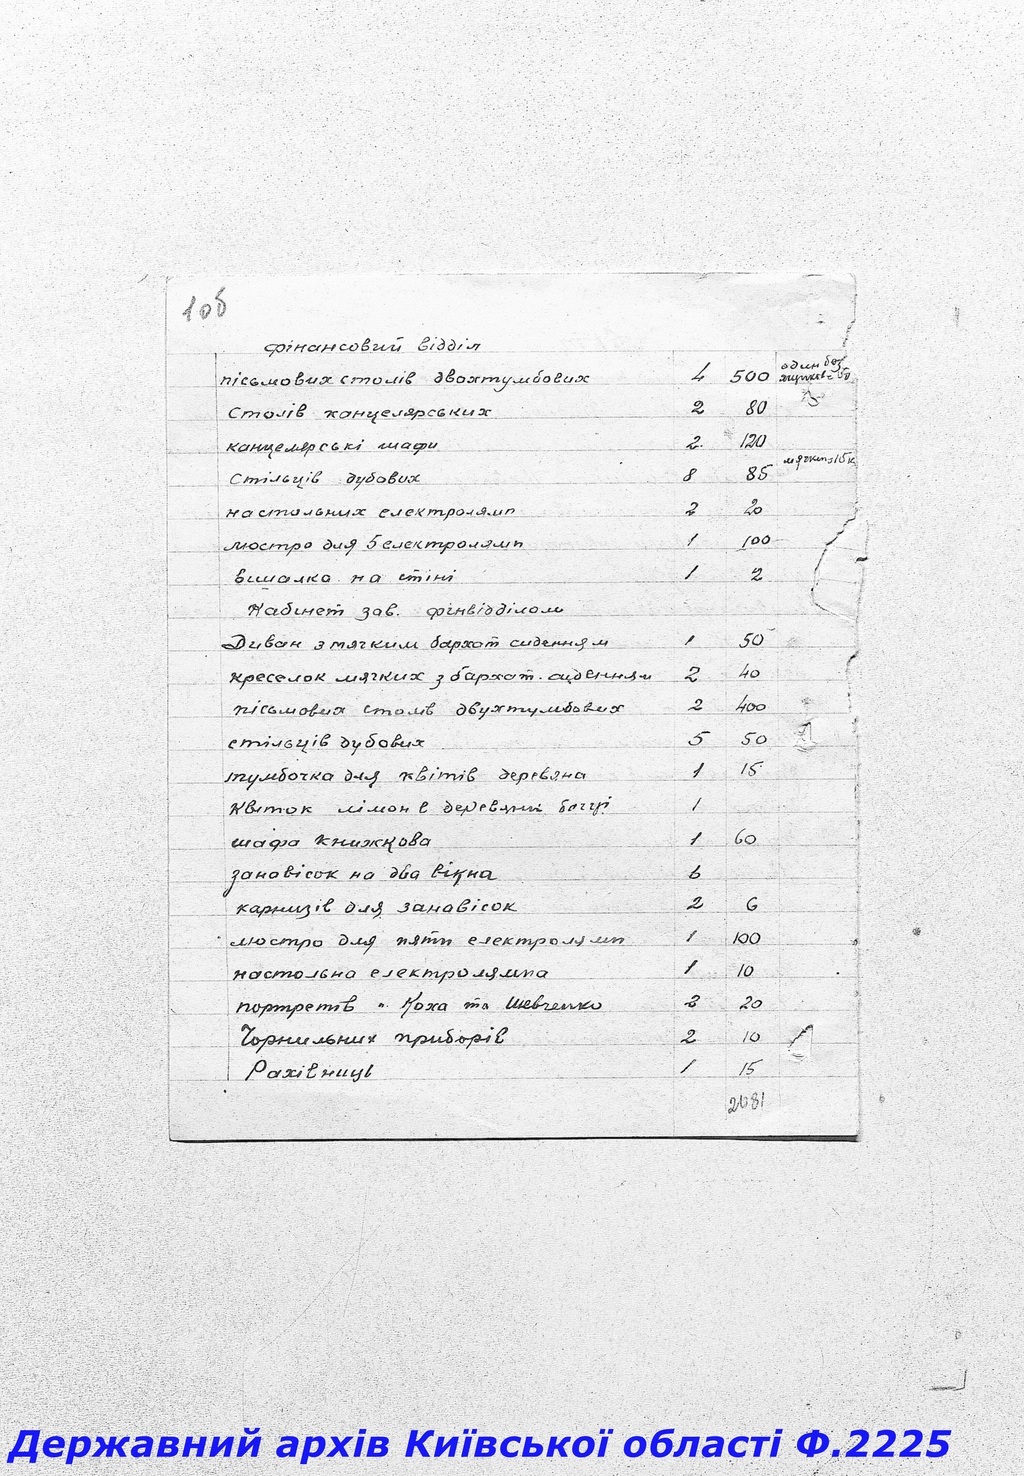 10б
фінансовий відділ
пісьмових столів двохтумбових 4 500 один без
столів канцелярських 2 80
канцелярські шафи 2 120
стільців дубових 8 85
настольних електролямп 2 20
люстра для 5 електролямп 1 100
вишалка на стіні 1 2
Кабинет зав. фінвідділом
Диван з мягким бархат сиденням 1 50
креселок мягких з бархат. сиденням 2 40
пісьмових столів двухтумбових 2 400
стільців дубових 5 50
тумбочка для квітів деревяна 1 15
Квіток лімон в деревяній бочці 1
шафа книжкова 1 60
занавісок на два вікна 6
карнизів для занавісок 2 6
люстра для пяти електролямп 1 100
настольна електролямпа 1 10
портретів Коха та Шевченко 2 20
Чорнильних приборів 2 10
Рахівниць 1 15
2081
Державний архів Київської області Ф.2225